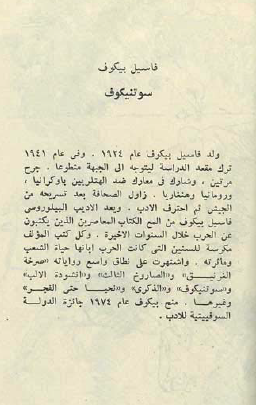 فاسيل بيكوف
سوتنيكوف
ولد فاسيل بيكوف عام ١٩٢٤ . وفي عام ١٩٤١
ترك مقعد الدراسة ليتوجه الى الجبهة متطوعا . جرح
مرتين ، وشارك في معارك ضد الهتلريين باوكرانيا ،
ورومانيا وهنغاريا . زاول الصحافة بعد تسريحه من
الجيش ثم احترف الادب . ويعد الاديب البيلوروسي
فاسيل بيكوف من المع الكتاب المعاصرين الذين يكتبون
عن الحرب خلال السنوات الاخيرة . وكل كتب المؤلف
مكرسة للسنين التي كانت الحرب ابانها حياة الشعب
ومآثرته . واشتهرت على نطاق واسع رواياته «صرخة
الغرنيـــق» و«الصاروخ الثالث» و«انشودة الالب»
و«سوتنيكوف» و«الذكرى» و«لنحيـا حتى الفجـر»
وغيرهـا . منح بيكوف عام ١٩٧٤ جائزة الدولـــة
السوفييتية للادب .